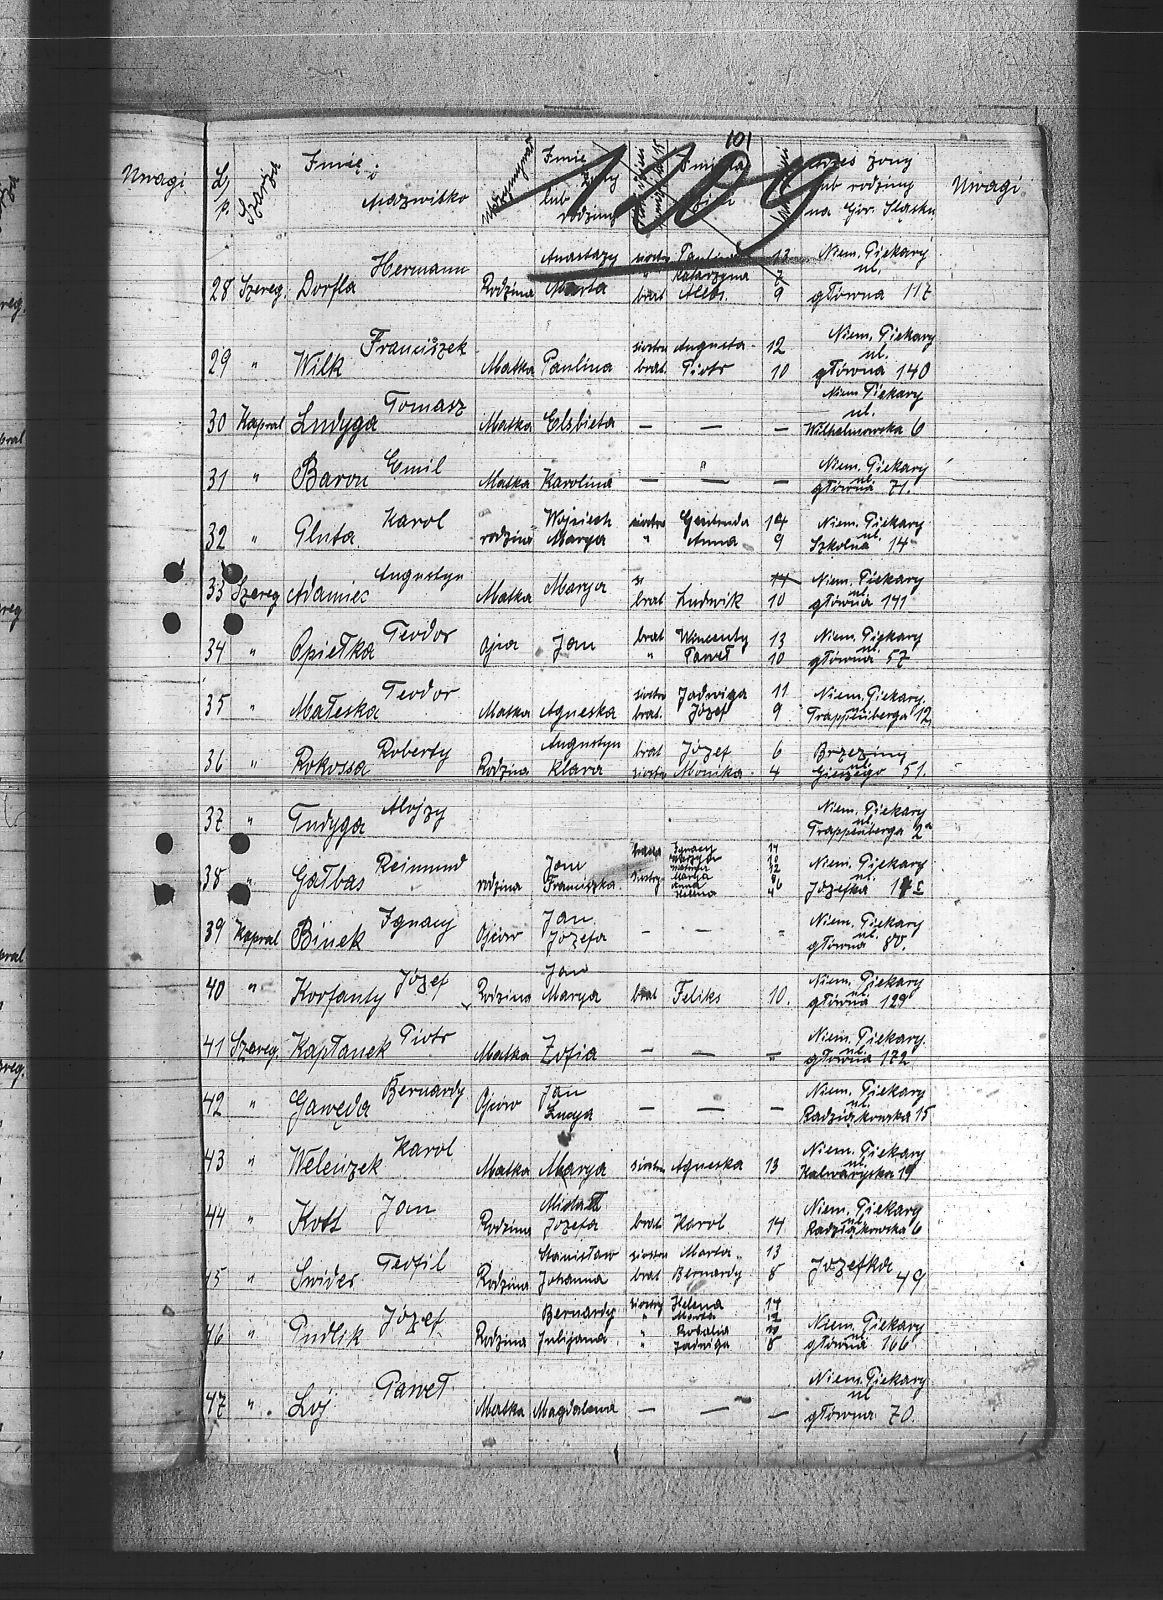 101
1209
Uwagi
L.p. Szarża Imię i Nazwisko Imię żony lub rodziny adres żony lub rodziny na Gór. Śląsku Uwagi
28 Szereg. Dorfla Hermann Rodzina Anastazy Marta siostra Paulina 13 Niem. Piekary
" Katarzyna 7 ul.
brat Aleks. 9 główna 117
29 " Wilk Franciszek Matka Paulina siostra Augusta 12 Niem. Piekary ul.
brat Piotr 10 główna 140
30 Kapral Ludyga Tomasz Matka Elsbieta — — — Niem. Piekary ul.
Wilhelmowska 6
31 " Baron Emil Matka Karolina — — — Niem. Piekary ul.
główna 71.
32 " Pluta Karol rodzina Wojciech Marya siostra Gertruda 14 Niem. Piekary ul.
" Anna 9 Szkolna 14
33 Szereg Adamiec Augustyn Matka Marya 14 Niem. Piekary ul.
brat Ludwik 10 główna 141
34 " Opiełka Teodor Ojca Jan brat Wincenty 13 Niem. Piekary ul.
" Paweł 10 główna 57
35 " Małeska Teodor Matka Agneska siostra Jadwiga 11 Niem. Piekary ul.
brat Józef 9 Trappenberga 12
36 " Rokossa Roberty Rodzina Augustyn Klara brat Józef 6 Brzeziny ul.
siostra Monika 4 51.
37 " Tudyga Alojzy Niem. Piekary ul.
Trappenberga 2a
38 " Gałbas Reinmund rodzina Jan Franciszka Niem. Piekary ul.
siostry Marya Anna Helena Józefka
39 Kapral Binek Ignacy Ojców Jan Józefa — — — Niem. Piekary ul.
główna 80.
40 " Korfanty Józef Rodzina Jan Marya brat Feliks 10. Niem. Piekary ul.
główna 129
41 Szereg. Kapłanek Piotr Matka Zofia — — — Niem. Piekary. ul.
główna 172
42 " Gawęda Bernardy Ojców Jan — — — Niem. Piekary ul.
Radziąkowska 15
43 " Welenzek Karol Matka Marya siostra Agneska 13 Niem. Piekary ul.
Kalwaryska 19
44 " Kott Jan Rodzina Józefa brat Karol 14 Niem. Piekary ul.
Radziąkowska 6
45 " Swider Teofil Rodzina Stanisław Johanna siostra Marta 13 Józefka 49
brat Bernardy 8
46 " Pudlik Józef Rodzina Bernardy Julijana siostry Helena 14 Niem. Piekary ul.
" Marta 12
" Rozalia 10
" Jadwiga 8 główna 166
47 " Lój Paweł Matka Magdalena — — — Niem. Piekary ul.
główna 70.